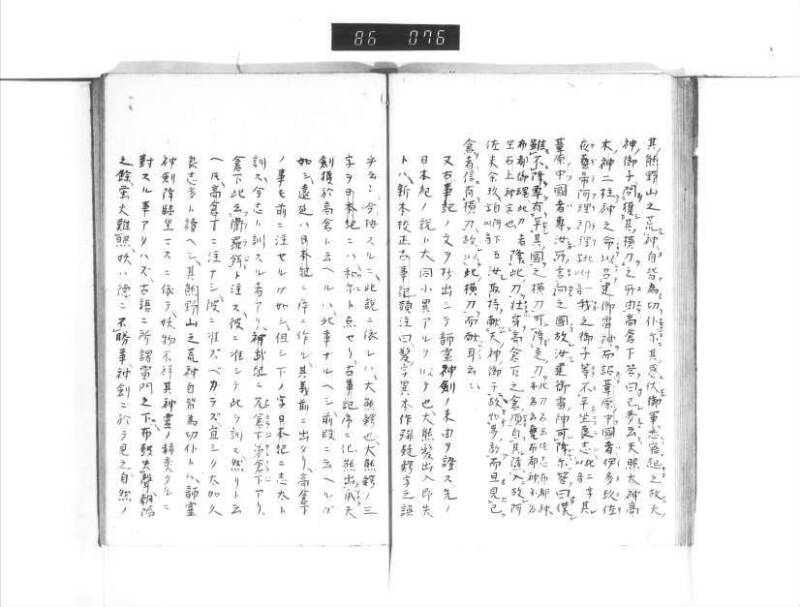 86 076
其熊野山之荒神自皆為切仆尓其惑伏御軍悉寤起之故天
神御子問獲其横刀之所由高倉下答曰己夢云天照大神高
木神二柱神之命以召建御雷神而詔葦原中國者伊多玖佐
夜藝帝阿理那理此十一字以音我之御子等不平坐良志此二字以音其
葦原中國者專汝所言向之國故汝建御雷神可降尓答曰僕
雖不降專有平其國之横刀可降是刀此刀名云佐士布都神亦名云甕布都神亦名
布都御魂此刀者坐石上神宮也降此刀状者穿高倉下之倉頂自其墮入故阿
佐米余玖自阿下五字以音汝取持獻天神御子故如夢教而旦見己
倉者信有横刀故以此横刀而獻耳云云
又古事記ノ文ヲ抄出シテ師霊神劍ノ来由ヲ證ス先ノ
日本紀ノ説ト大同小異アルヲ以テ也大熊髪出入即失
トハ新本校正古事記頭注曰髪字異本作
乎云云今按スルニ此説ニ依レハ大熊鰐也大熊鰐ノ三
字ヲ日本紀ニハ和尓ト点セリ古事記序ニ化熊出爪天
劍獲於高倉ト云ヘルハ此事ナルヘシ前段ニ云ヘルガ
如シ遠延ハ日本紀ニ瘁ニ作ル其義前ニ出タリ高倉下
ノ事モ前ニ注セルガ如シ但シ下ノ字日本紀ニ志太ト
訓ス今志ト訓スル者アリ神武紀ニ兄倉下弟倉下アリ
倉下此云衢羅餌ト注ス彼ニ准シテ此ヲ訓ス然リト云
ヘ𪜈高倉下ニ注ナシ彼ニ准ズベカラズ宜シク太加久
良志多ト讀ヘシ其熊野山之荒神自皆為切仆トハ師霊
神劍降臨坐マスニ依テ妖物不祥其神霊ノ
對スル事アタハズ古語ニ所謂雷門之下布鼓失聲朝陽
之餘螢火難照妖ハ德ニ不勝事神劍ニ於テ見之自然ノ